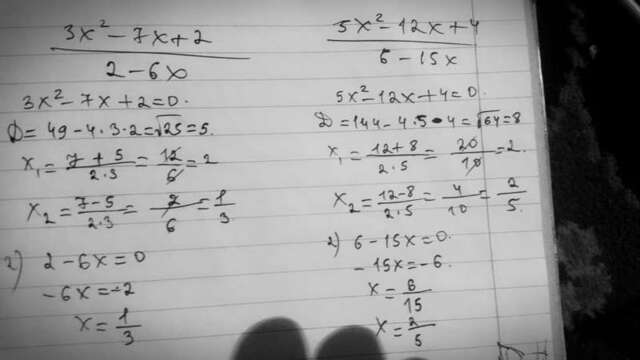 3x² - 7x + 2
2 - 6x
3x² - 7x + 2 = 0.
D = 49 - 4 · 3 · 2 = √25 = 5.
x₁ = 7 + 5 / 2·3 = 12 / 6 = 2
x₂ = 7 - 5 / 2·3 = 2 / 6 = 1 / 3
2) 2 - 6x = 0
- 6x = -2
x = 1 / 3
5x² - 12x + 4
6 - 15x
5x² - 12x + 4 = 0.
D = 144 - 4 · 5 · 4 = √64 = 8
x₁ = 12 + 8 / 2·5 = 20 / 10 = 2.
x₂ = 12 - 8 / 2·5 = 4 / 10 = 2 / 5.
2) 6 - 15x = 0.
- 15x = - 6.
x = 6 / 15
x = 2 / 5